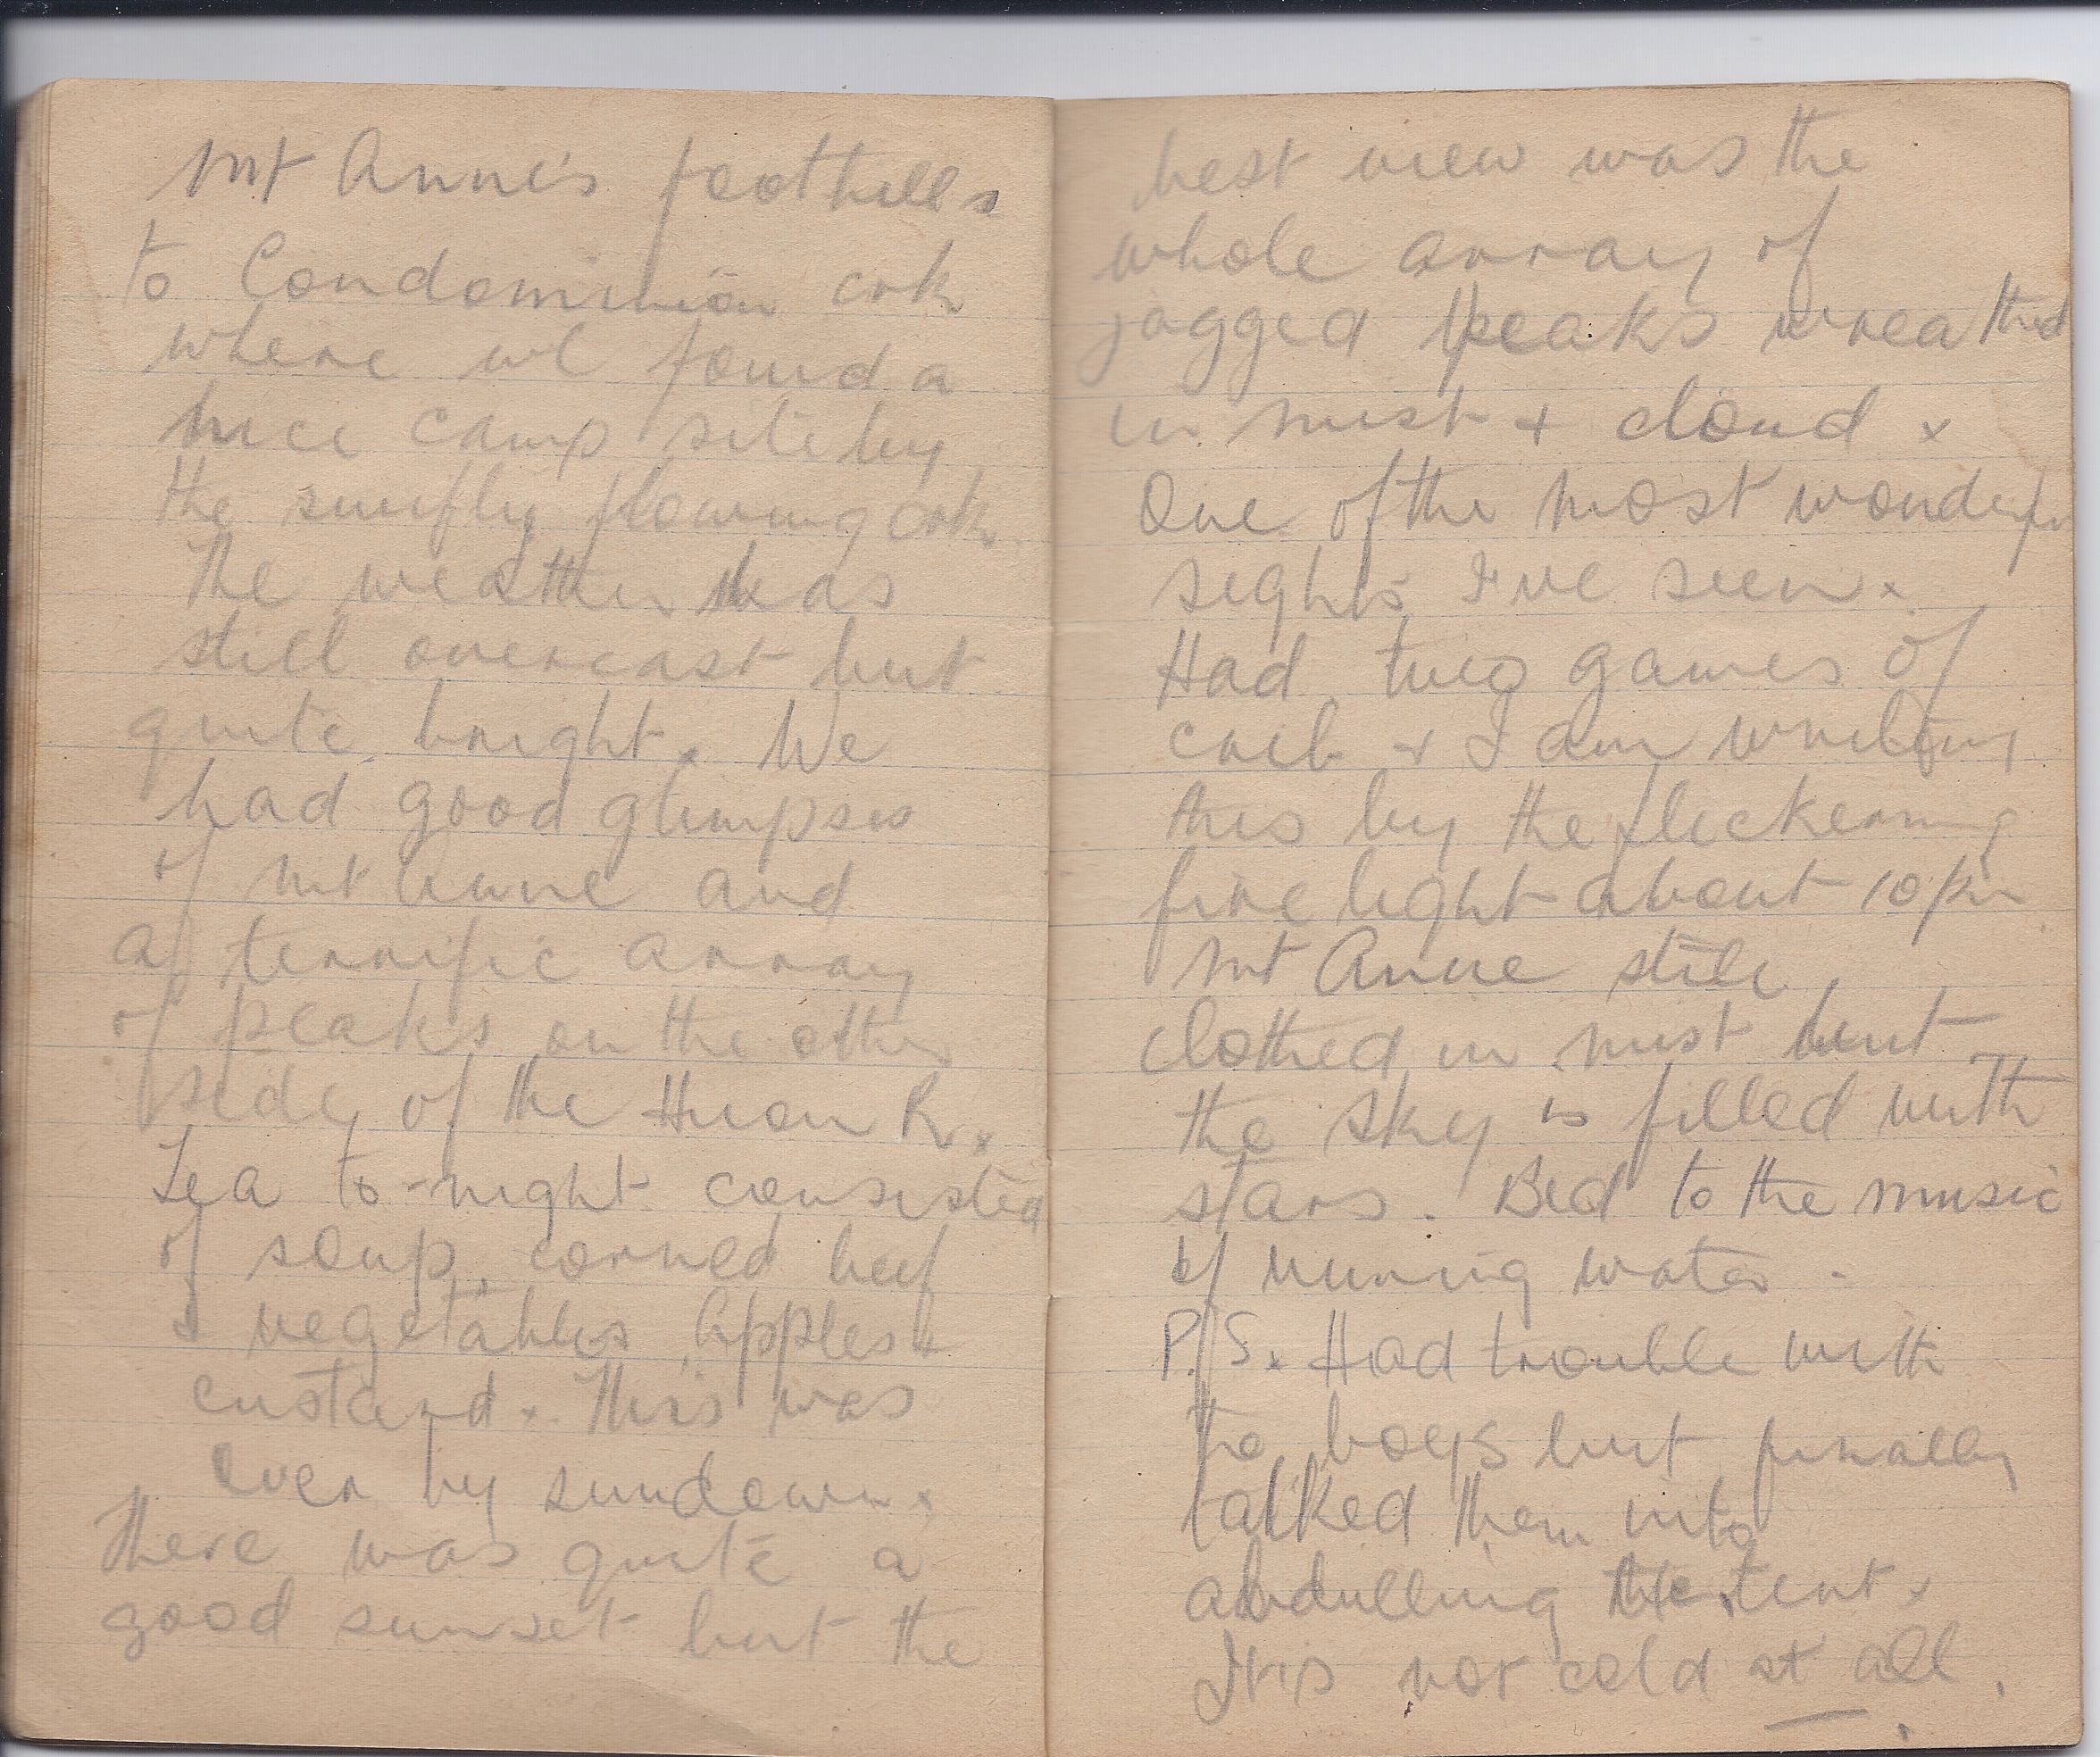 Mt Anne's foothills
to Condominion crk
where we found a
nice camp site by
the swiftly flowing crk
The weather was
still overcast but
quite bright. We
had good glimpses
of Mt Anne and
a terrific array
of peaks on the other
side of the Huon R.
Tea to-night consisted
of soup, corned beef
& vegetables, apples &
custard. This was
over by sundown.
There was quite a
good sunset but the
best view was the
whole array of
jagged peaks wreathed
in mist + cloud.
One of the most wonderful
sights I've seen.
Had two games of
crib + I am writing
this by the flickering
fire light about 10 pm
Mt Anne still
clothed in mist but
the sky is filled with
stars. Bed to the music
of running water.
P.S. Had trouble with
the boys but finally
talked them into
abdulling the tent.
It is not cold at all.